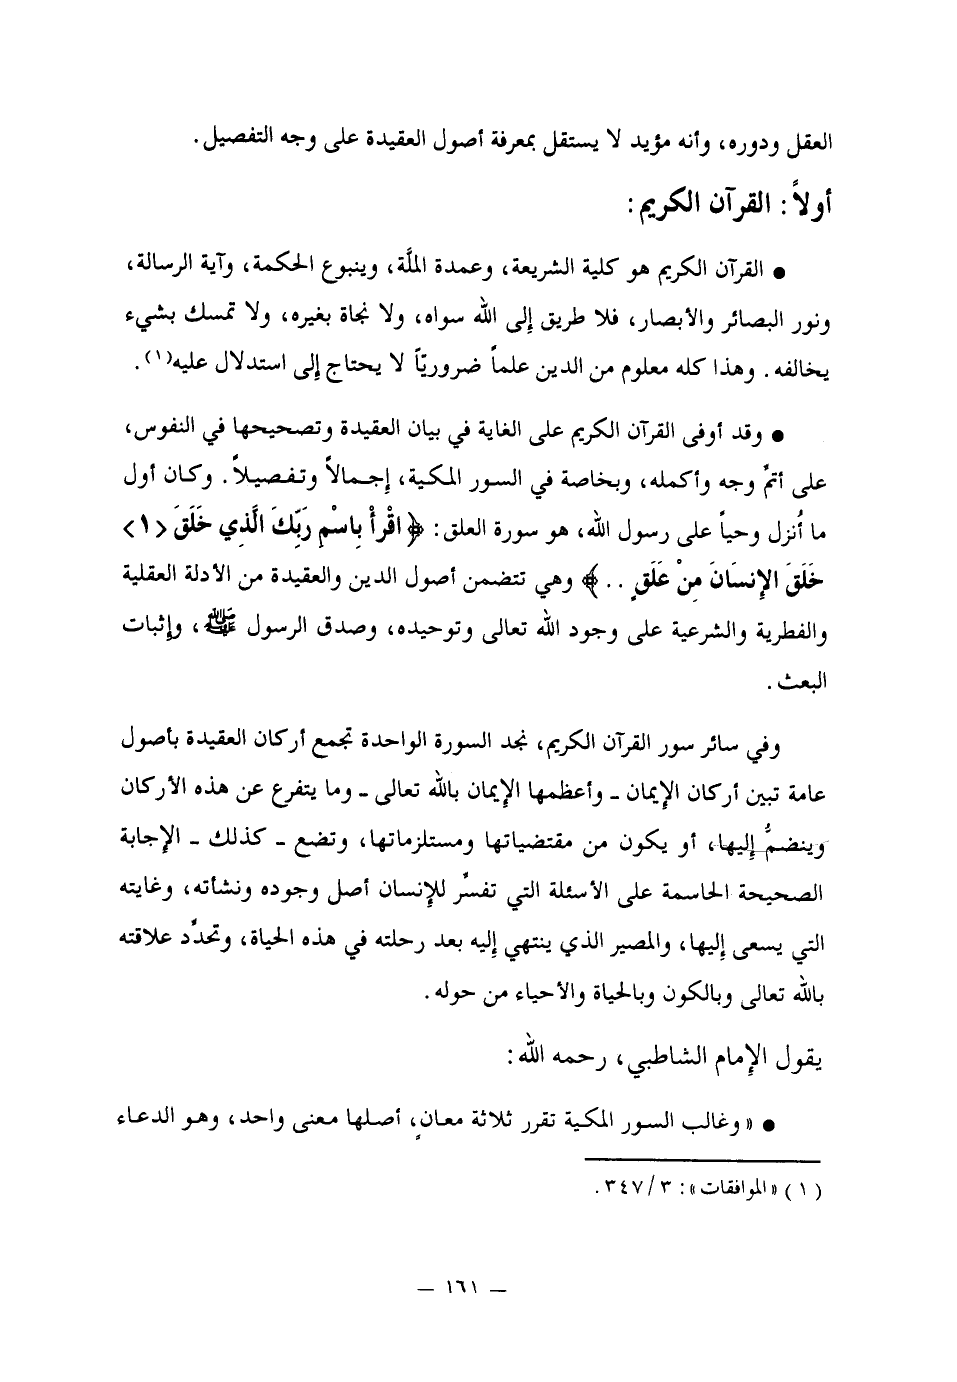 العقل ودوره، وأنه مؤيد لا يستقل بمعرفة أصول العقيدة على وجه التفصيل.
أولاً: القرآن الكريم:
● القرآن الكريم هو كلية الشريعة، وعمدة الملَّة، وينبوع الحكمة، وآية الرسالة،
ونور البصائر والأبصار، فلا طريق إلى الله سواه، ولا نجاة بغيره، ولا تمسك بشيء
يخالفه. وهذا كله معلوم من الدين علماً ضروريّاً لا يحتاج إلى استدلال عليه(١).
● وقد أوفى القرآن الكريم على الغاية في بيان العقيدة وتصحيحها في النفوس،
على أتمِّ وجه وأكمله، وبخاصة في السور المكية، إجمالاً وتفصيلاً. وكان أول
ما أُنزل وحياً على رسول الله، هو سورة العلق: ﴿اقْرأْ بِاسْمِ رَبِّكَ الَّذِي خَلَقَ <١>
خَلَقَ الإِنسَانَ مِنْ عَلَقٍ ..﴾ وهي تتضمن أصول الدين والعقيدة من الأدلة العقلية
والفطرية والشرعية على وجود الله تعالى وتوحيده، وصدق الرسول ﷺ، وإثبات
البعث.
وفي سائر سور القرآن الكريم، نجد السورة الواحدة تجمع أركان العقيدة بأصول
عامة تبين أركان الإيمان ـ وأعظمها الإيمان بالله تعالى ـ وما يتفرع عن هذه الأركان
وينضمُّ إليها، أو يكون من مقتضياتها ومستلزماتها، وتضع ـ كذلك ـ الإجابة
الصحيحة الحاسمة على الأسئلة التي تفسِّر للإنسان أصل وجوده ونشأته، وغايته
التي يسعى إليها، والمصير الذي ينتهي إليه بعد رحلته في هذه الحياة، وتحدِّد علاقته
بالله تعالى وبالكون وبالحياة والأحياء من حوله.
يقول الإمام الشاطبي، رحمه الله:
● «وغالب السور المكية تقرر ثلاثة معانٍ، أصلها معنى واحد، وهو الدعاء
(١) «الموافقات»: ٣/ ٣٤٧.
— ١٦١ —